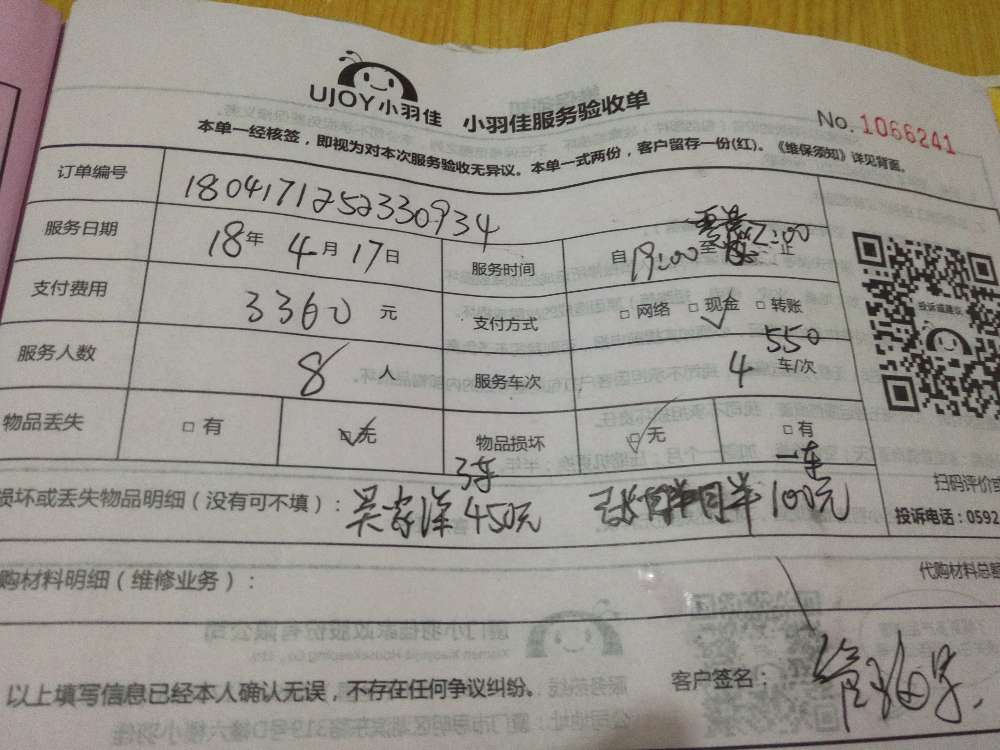 UJOY小羽佳 小羽佳服务验收单
No. 1066241
本单一经核签，即视为对本次服务验收无异议。本单一式两份，客户留存一份(红)。《维保须知》详见背面。
订单编号 180417125233​0934
服务日期 18年 4月 17日 服务时间 自 至 止
支付费用 3360 元 支付方式 □ 网络 □ 现金 □ 转账
550
服务人数 8 人 服务车次 4 车/次
物品丢失 □ 有 □ 无 物品损坏 □ 无 □ 有
3车 一车
损坏或丢失物品明细（没有可不填）： 吴家洋450元 100元
扫码评价或
投诉电话：0592
购材料明细（维修业务）：
代购材料总额
以上填写信息已经本人确认无误，不存在任何争议纠纷。 客户签名：
投诉或建议